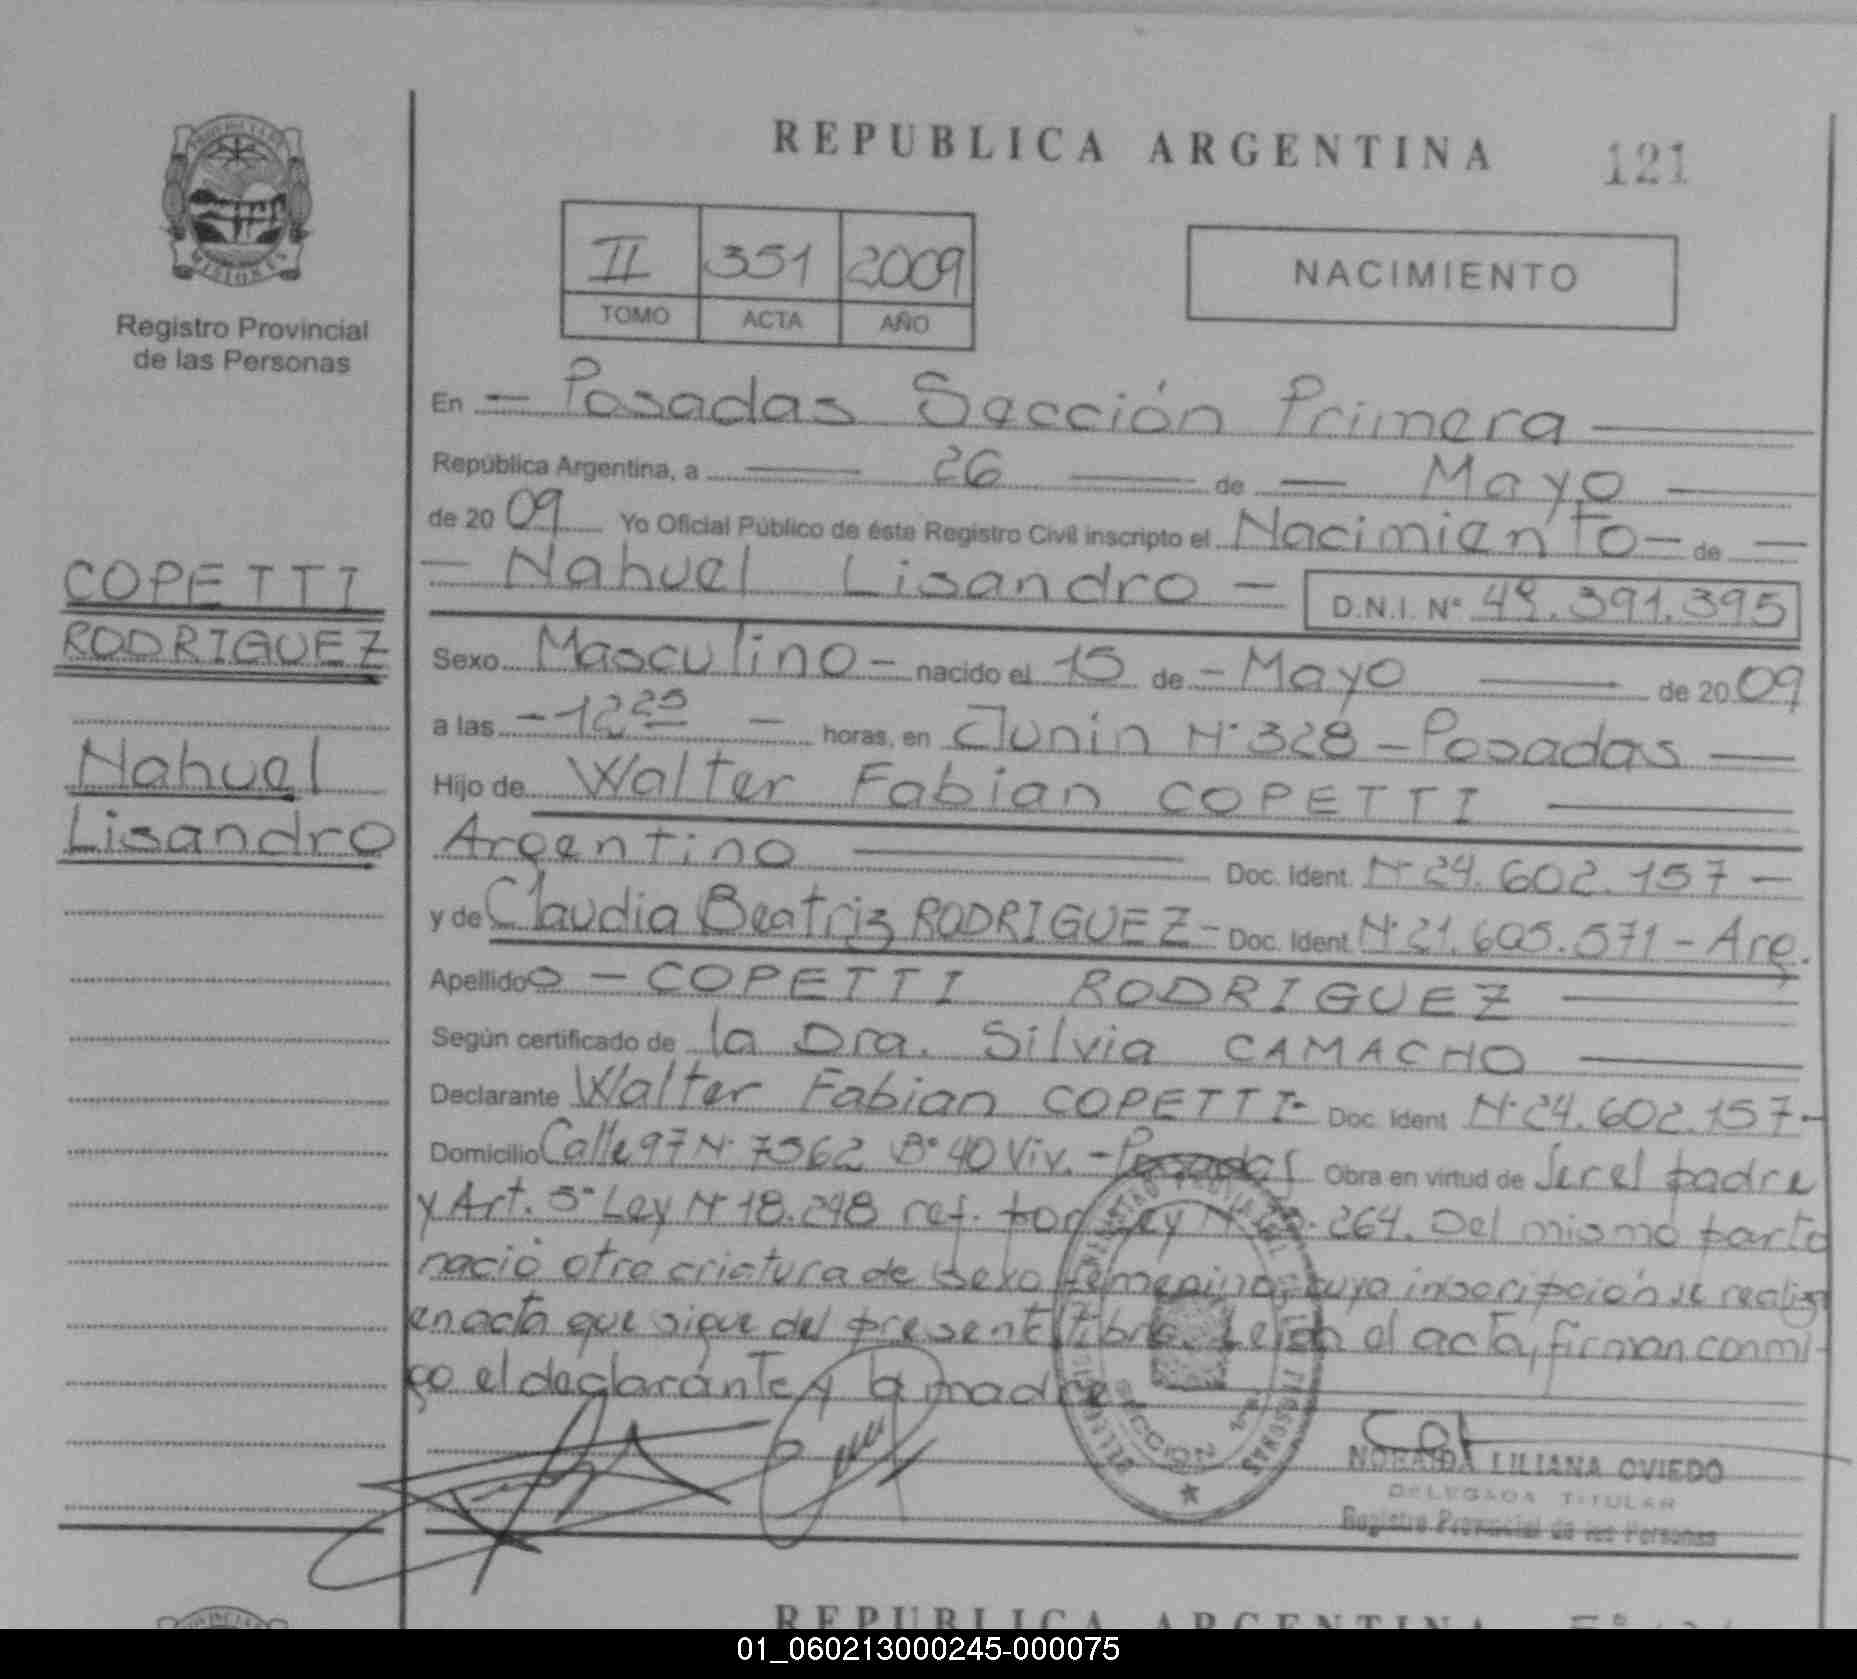 REPUBLICA ARGENTINA 121
PROVINCIA DE MISIONES
Registro Provincial
de las Personas
II 351 2009
TOMO ACTA AÑO
NACIMIENTO
COPETTI
RODRIGUEZ
Nahuel
Lisandro
En - Posadas Sección Primera
República Argentina, a 26 de - Mayo
de 2009 Yo Oficial Público de éste Registro Civil inscripto el Nacimiento - de -
- Nahuel Lisandro - D.N.I. Nº 49.391.395
Sexo Masculino - nacido el 15 de - Mayo de 2009
a las - 12 25 - horas, en Junin Nº 328 - Posadas
Hijo de Walter Fabian COPETTI
Argentino Doc. Ident. Nº 24.602.157 -
y de Claudia Beatriz RODRIGUEZ - Doc. Ident. Nº 21.605.571 - Arg.
Apellido - COPETTI RODRIGUEZ
Según certificado de la Dra. Silvia CAMACHO
Declarante Walter Fabian COPETTI - Doc. Ident Nº 24.602.157 -
Domicilio Calle 97 Nº 7362 Bº 40 Viv. - Posadas Obra en virtud de ser el padre
y Art. 5º Ley Nº 18.248 ref. por Ley 264. Del mismo parto
nació otra criatura de sexo femenino, cuya inscripción se realiza
en acta que sigue del presente libro. Leida el acta, firman conmi-
go el declarante y la madre
SECCION 1ra
NORAIDA LILIANA OVIEDO
DELEGADA TITULAR
Registro Provincial de las Personas
REPUBLICA ARGENTINA
01_060213000245-000075